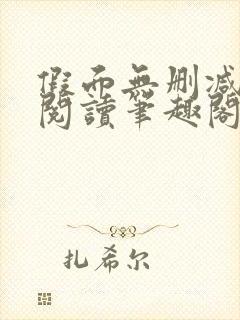 假而無删减
閱讀筆趣閣
扎希尔